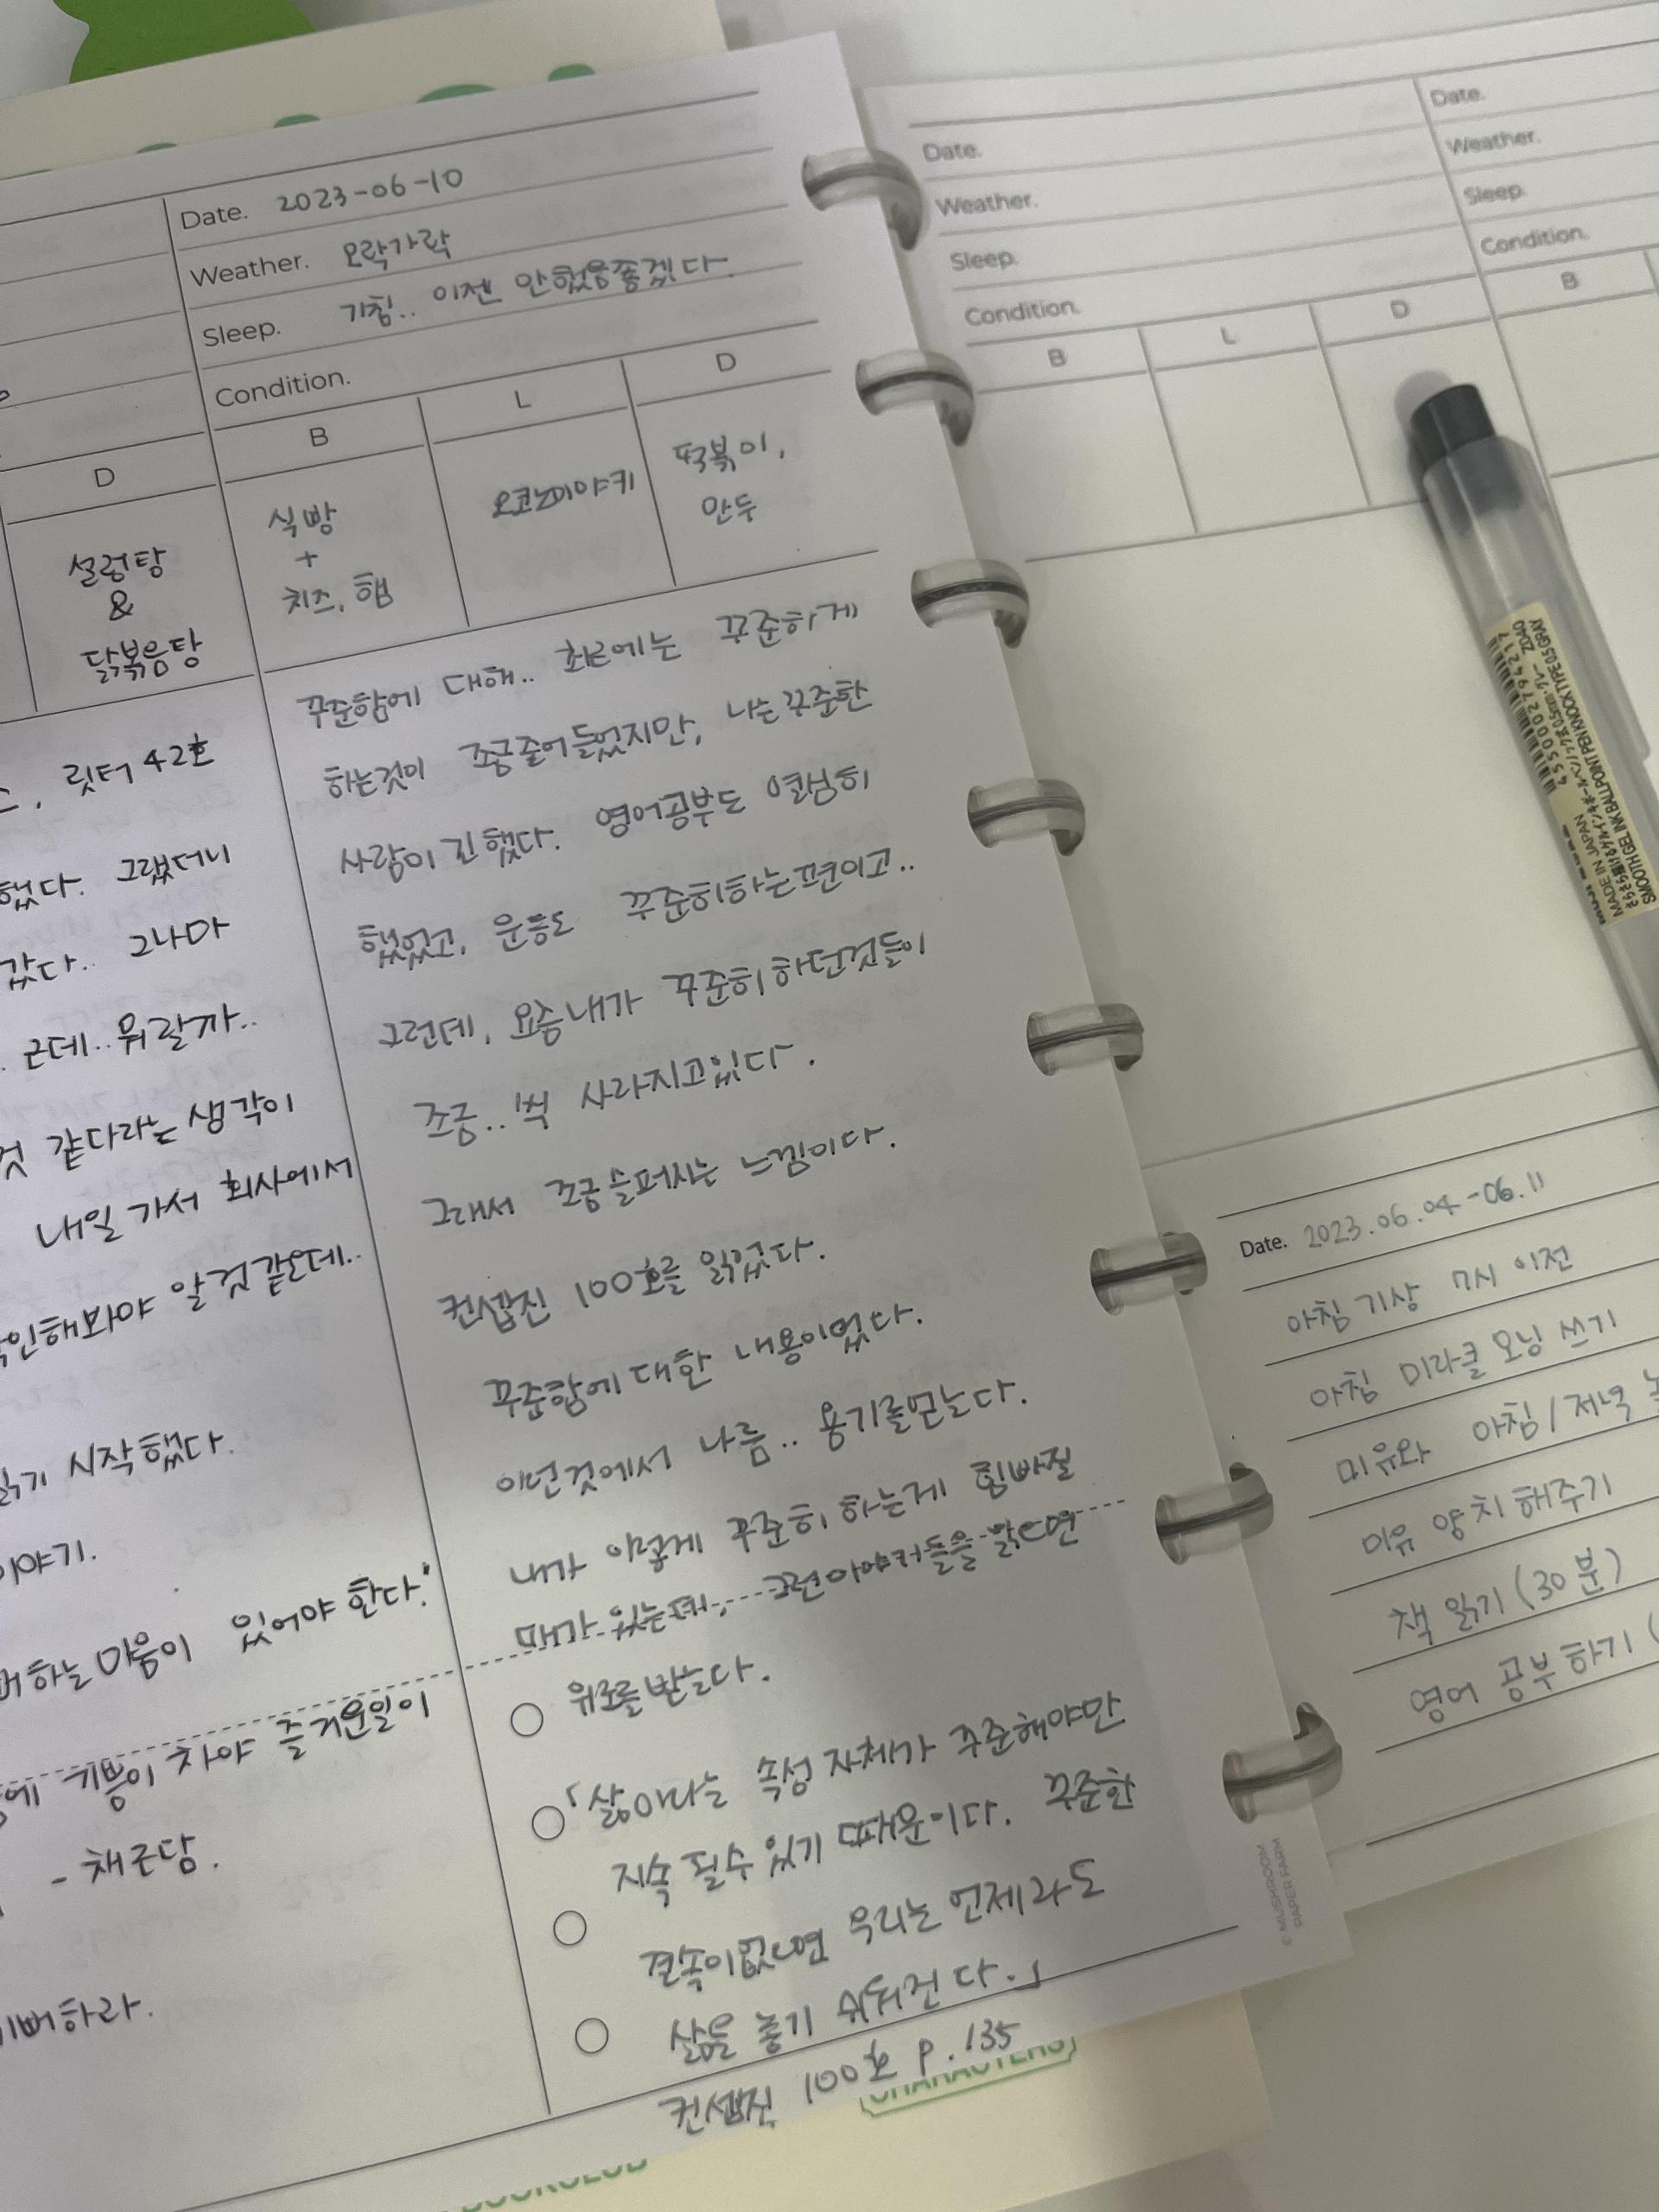 D
설렁탕
&
닭볶음탕
릿터 42호
했다. 그랬더니
갔다.. 그나마
근데.. 뭐랄까..
것 같다라는 생각이
내일 가서 회사에서
확인해보아야 알것같은데..
읽기 시작했다.
이야기.
하는 마음이 있어야 한다."
에 기쁨이 차야 즐거운일이
- 채근담.
기뻐하라.
Date. 2023-06-10
Weather. 오락가락
Sleep. 기침.. 이젠 안했음좋겠다.
Condition.
B L D
식빵
+
치즈, 햄
오코노미야키
떡볶이,
만두
꾸준함에 대해.. 최근에는 꾸준하게
하는것이 조금줄어들었지만, 나는꾸준한
사람이긴했다. 영어공부도 열심히
했었고, 운동도 꾸준히하는편이고..
그런데, 요즘내가 꾸준히하던것들이
조금..씩 사라지고있다.
그래서 조금슬퍼지는 느낌이다.
컨셉진 100호를 읽었다.
꾸준함에 대한 내용이었다.
이런것에서 나름.. 용기를얻는다.
내가 이렇게 꾸준히 하는게 힘빠질
때가 있는데, 그런이야기들을 읽으면
위로를받는다.
「삶이라는 속성 자체가 꾸준해야만
지속 될수 있기 때문이다. 꾸준한
결속이없으면 우리는 언제라도
삶을 놓기 쉬워진다.」
컨셉진 100호 p.135
© MUSHROOM
PAPER FARM
CHARACTERS
BOOKCLUB
Date.
Weather.
Sleep.
Condition.
B L D
Date.
Weather.
Sleep.
Condition.
B
MADE IN JAPAN
SMOOTH GEL INK BALLPOINT PEN KNOCK TYPE 0.5 GRAY
Date. 2023.06.04-06.11
아침 기상 7시 이전
아침 미라클 모닝 쓰기
미유와 아침/저녁
미유 양치 해주기
책 읽기 (30분)
영어 공부하기 (